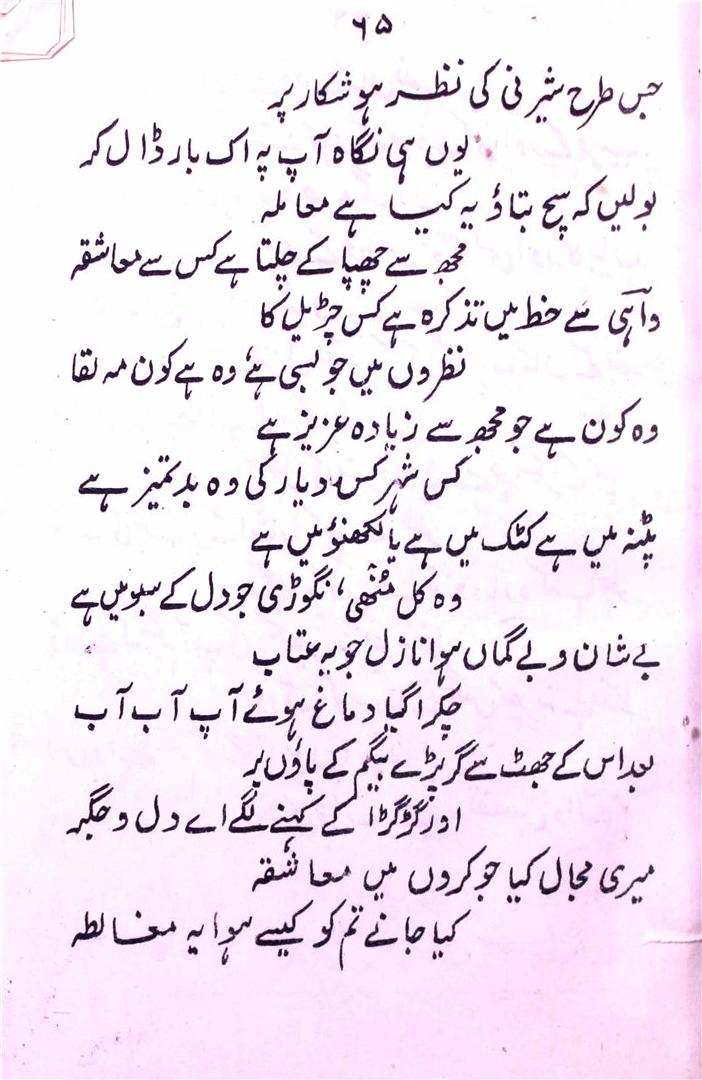 ۶۵
جس طرح شیرنی کی نظر ہو شکار پر
یوں ہی نگاہ آپ پہ اک بار ڈال کر
بولیں کہ سچ بتاؤ یہ کیسا ہے معاملہ
مجھ سے چھپا کے چلتا ہے کس سے معاشقہ
واہی سے خط میں تذکرہ ہے کس چڑیل کا
نظروں میں جو بسی ہے، وہ ہے کون مہ لقا
وہ کون ہے جو مجھ سے زیادہ عزیز ہے
کس شہر کس دیار کی وہ بدتمیز ہے
پٹنہ میں ہے کٹک میں ہے یا لکھنؤ میں ہے
وہ کل مُنھی، نگوڑی جو دل کے سبو میں ہے
بے شان و بے گماں ہوا نازل جو یہ عتاب
چکرا گیا دماغ ہوئے آپ آب آب
بعد اس کے جھٹ سے گر پڑے بیگم کے پاؤں پر
اور گڑگڑا کے کہنے لگے اے دل و جگر
میری مجال کیا جو کروں میں معاشقہ
کیا جانے تم کو کیسے ہوا یہ مغالطہ